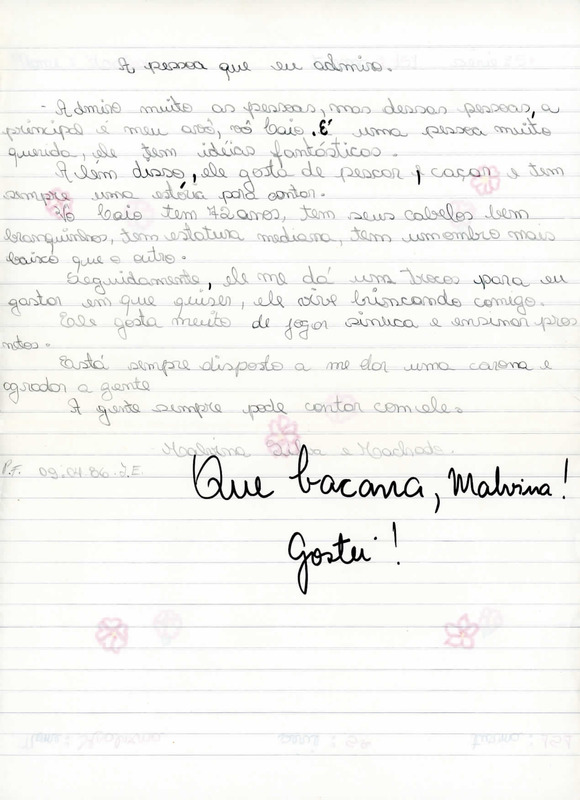 A pessoa que eu admiro.
- Admiro muito as pessoas, mas dessas pessoas, a
principal é meu avô, vô Caio. É uma pessoa muito
querida, ele tem idéias fantásticas.
Além disso, ele gosta de pescar, caçar e tem
sempre uma estória para contar.
Vô Caio tem 72 anos, tem seus cabelos bem
branquinhos, tem estatura mediana, tem um ombro mais
baixo que o outro.
Seguidamente, ele me dá uns trocos para eu
gastar em que quiser, ele vive brincando comigo.
Ele gosta muito de jogar sinuca e ensinar pros
netos.
Está sempre disposto a me dar uma carona e
agradar a gente
A gente sempre pode contar com ele.
Malvina Silva e Machado.
P.F. 09.04.86. J.E.
Que bacana, Malvina!
Gostei!